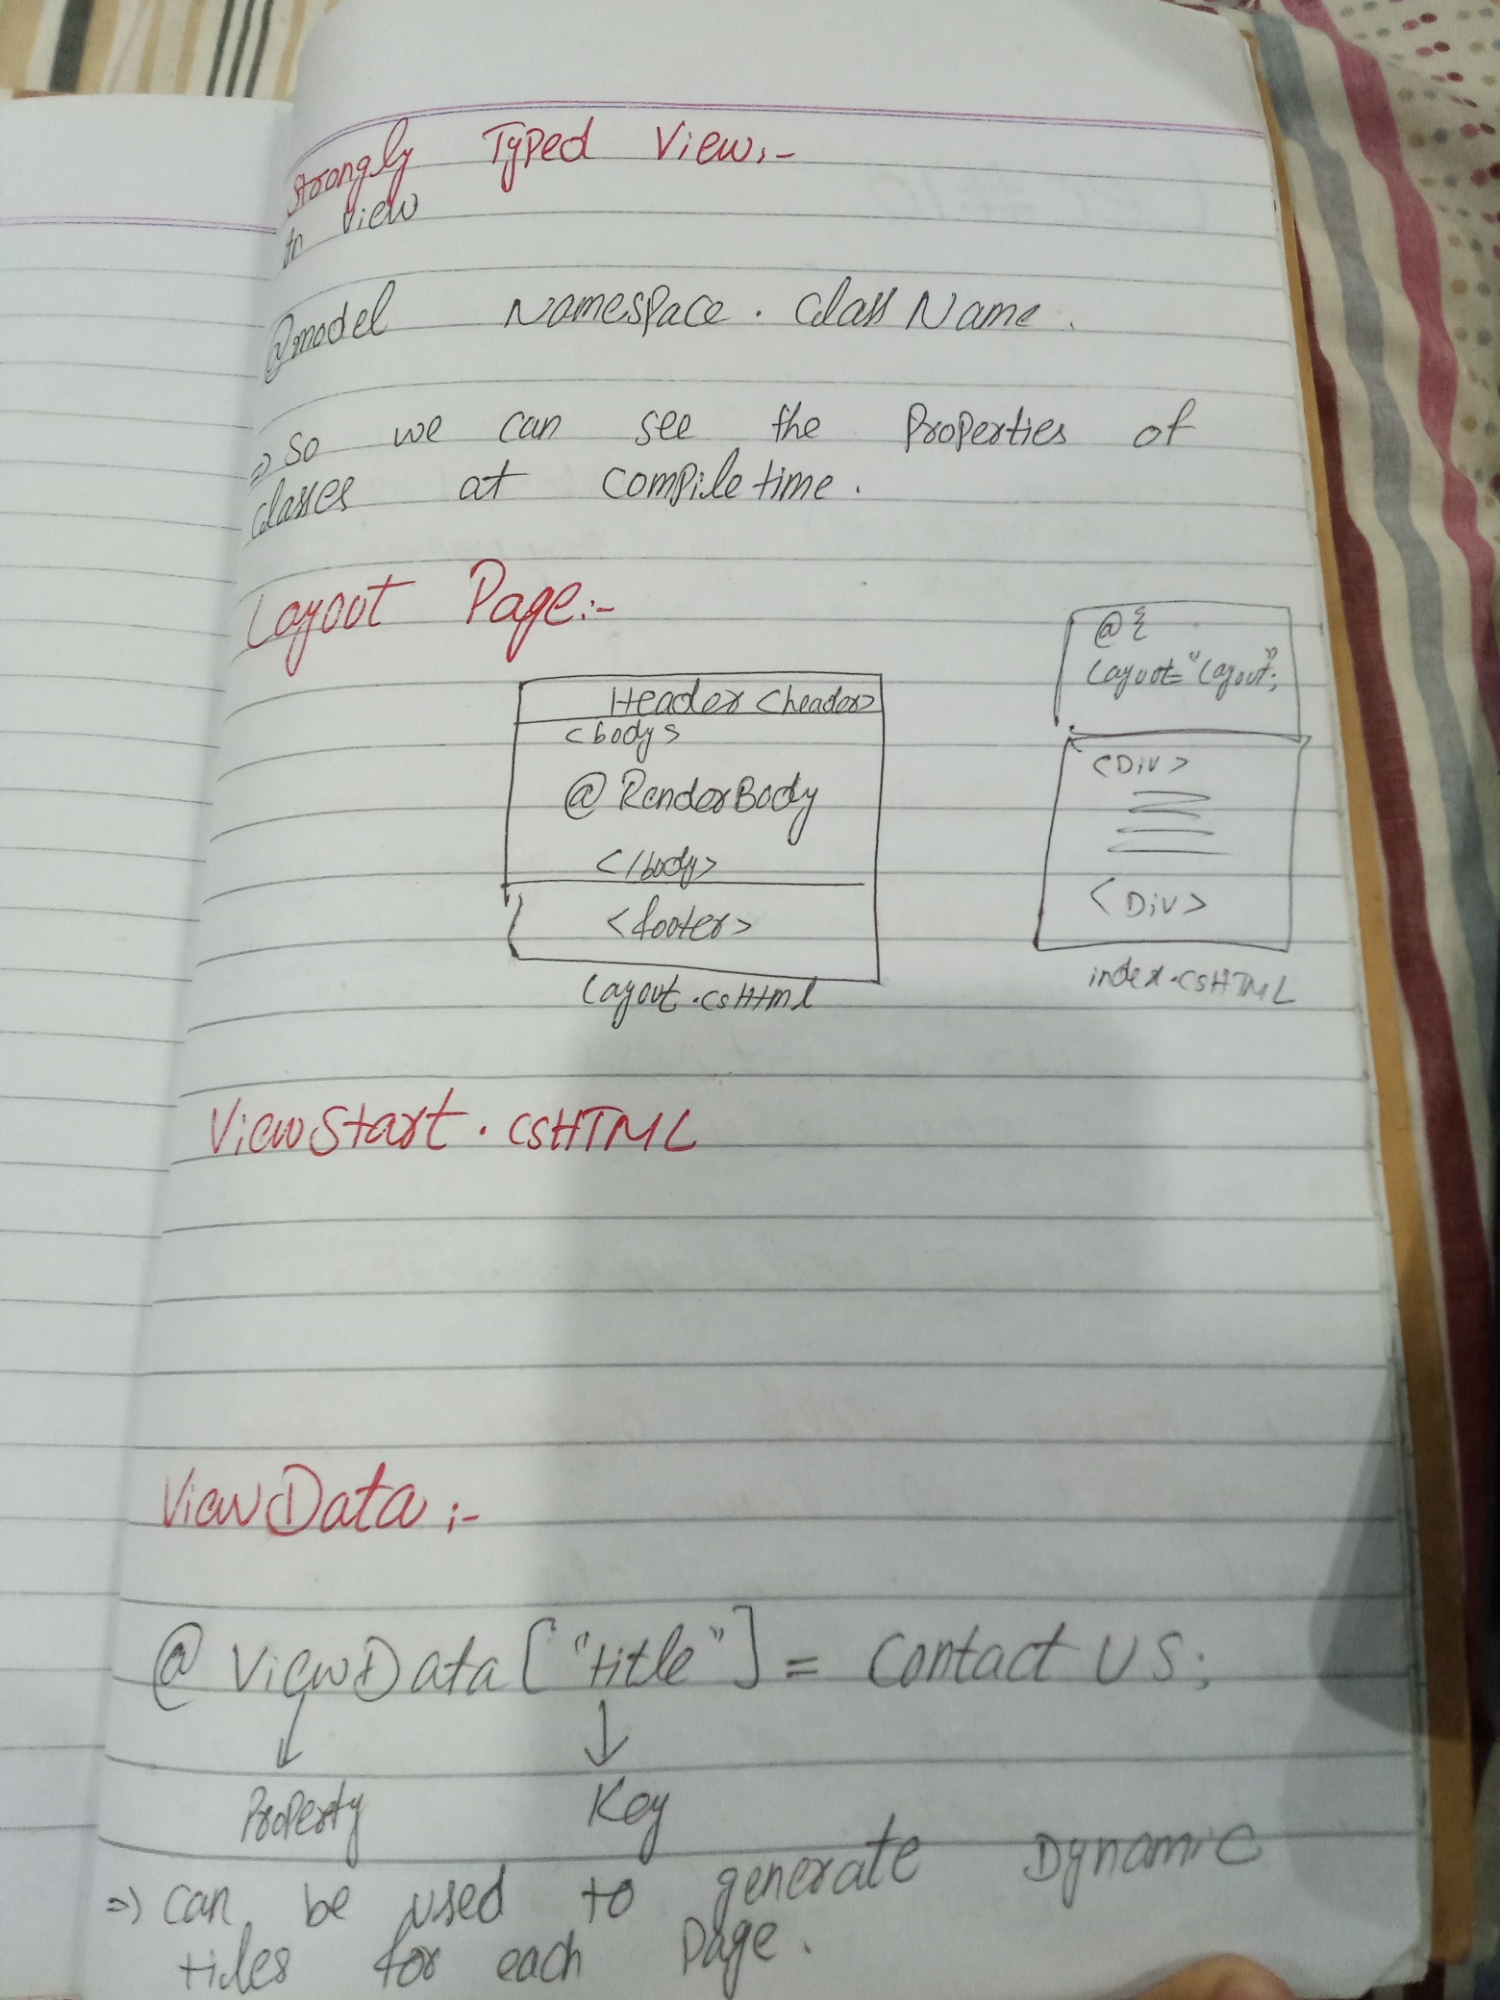 Strongly Typed View:-
In view
@model Namespace. ClassName.
=> So we can see the Properties of
classes at compile time.
Layout Page:-
Header <header>
<body>
@RenderBody
</body>
<footer>
Layout.csHtml
@{
Layout="Layout";
<Div>
<Div>
index.csHTML
ViewStart.csHTML
ViewData:-
@ViewData["title"] = Contact US;
Property Key
=> can be used to generate Dynamic
titles for each Page.